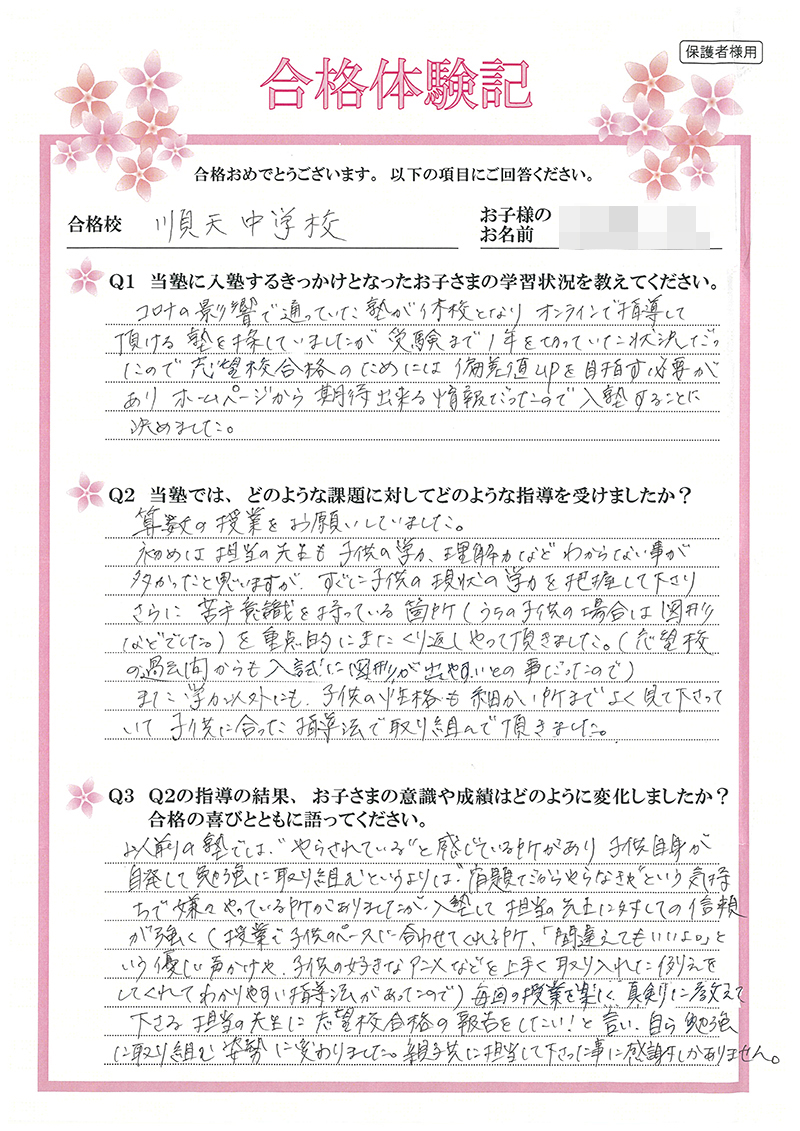 保護者様用
合格体験記
合格おめでとうございます。以下の項目にご回答ください。
合格校 順天中学校
お子様の
お名前
Q1 当塾に入塾するきっかけとなったお子さまの学習状況を教えてください。
コロナの影響で通っていた塾が休校となり オンラインで指導して
頂ける塾を探していましたが 受験まで1年を切っていた状況だっ
たので 志望校合格のためには 偏差値upを目指す必要が
あり ホームページから 期待出来る情報だったので 入塾することに
決めました。
Q2 当塾では、どのような課題に対してどのような指導を受けましたか？
算数の授業をお願いしていました。
初めは 担当の先生も 子供の学力、理解力など わからない事が
多かったと思いますが、すぐに子供の現状の学力を把握して下さり
さらに 苦手意識を持っている箇所(うちの子供の場合は図形
などでした。)を重点的にまたくり返しやって頂きました。(志望校
の過去問からも入試に図形が出やすいとの事だったので)
また 学力以外にも、子供の性格も 細かい所までよく見て下さって
いて 子供に合った指導法で取り組んで頂きました。
Q3 Q2の指導の結果、お子さまの意識や成績はどのように変化しましたか？
合格の喜びとともに語ってください。
以前の塾では、"やらされている"と感じている所があり 子供自身が
自発して勉強に取り組むというよりは、"宿題だからやらなきゃ"という気持
ちで嫌々やっている所がありましたが、入塾して 担当の先生に対しての信頼
が強く(授業で子供のペースに合わせてくれる所、「間違えてもいいよ。」と
いう優しい声かけや、子供の好きなアニメなどを上手く取り入れた例えを
してくれてわかりやすい指導法があったので)毎回の授業を楽しく、真剣に教えて
下さる 担当の先生に 志望校合格の報告をしたい!と言い、自ら勉強
に取り組む 姿勢に変わりました。親子共に担当して下さった事に感謝しかありません。